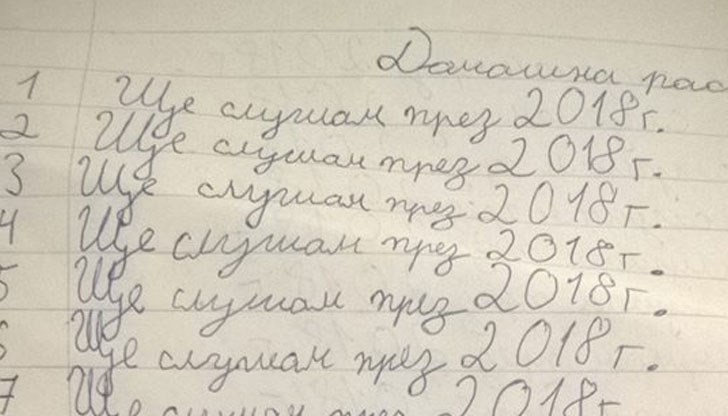 Домашна раб
1 Ще слушам през 2018г.
2 Ще слушам през 2018г.
3 Ще слушам през 2018г.
4 Ще слушам през 2018г.
5 Ще слушам през 2018г.
6 Ще слушам през 2018г.
7 Ще слушам през 2018г